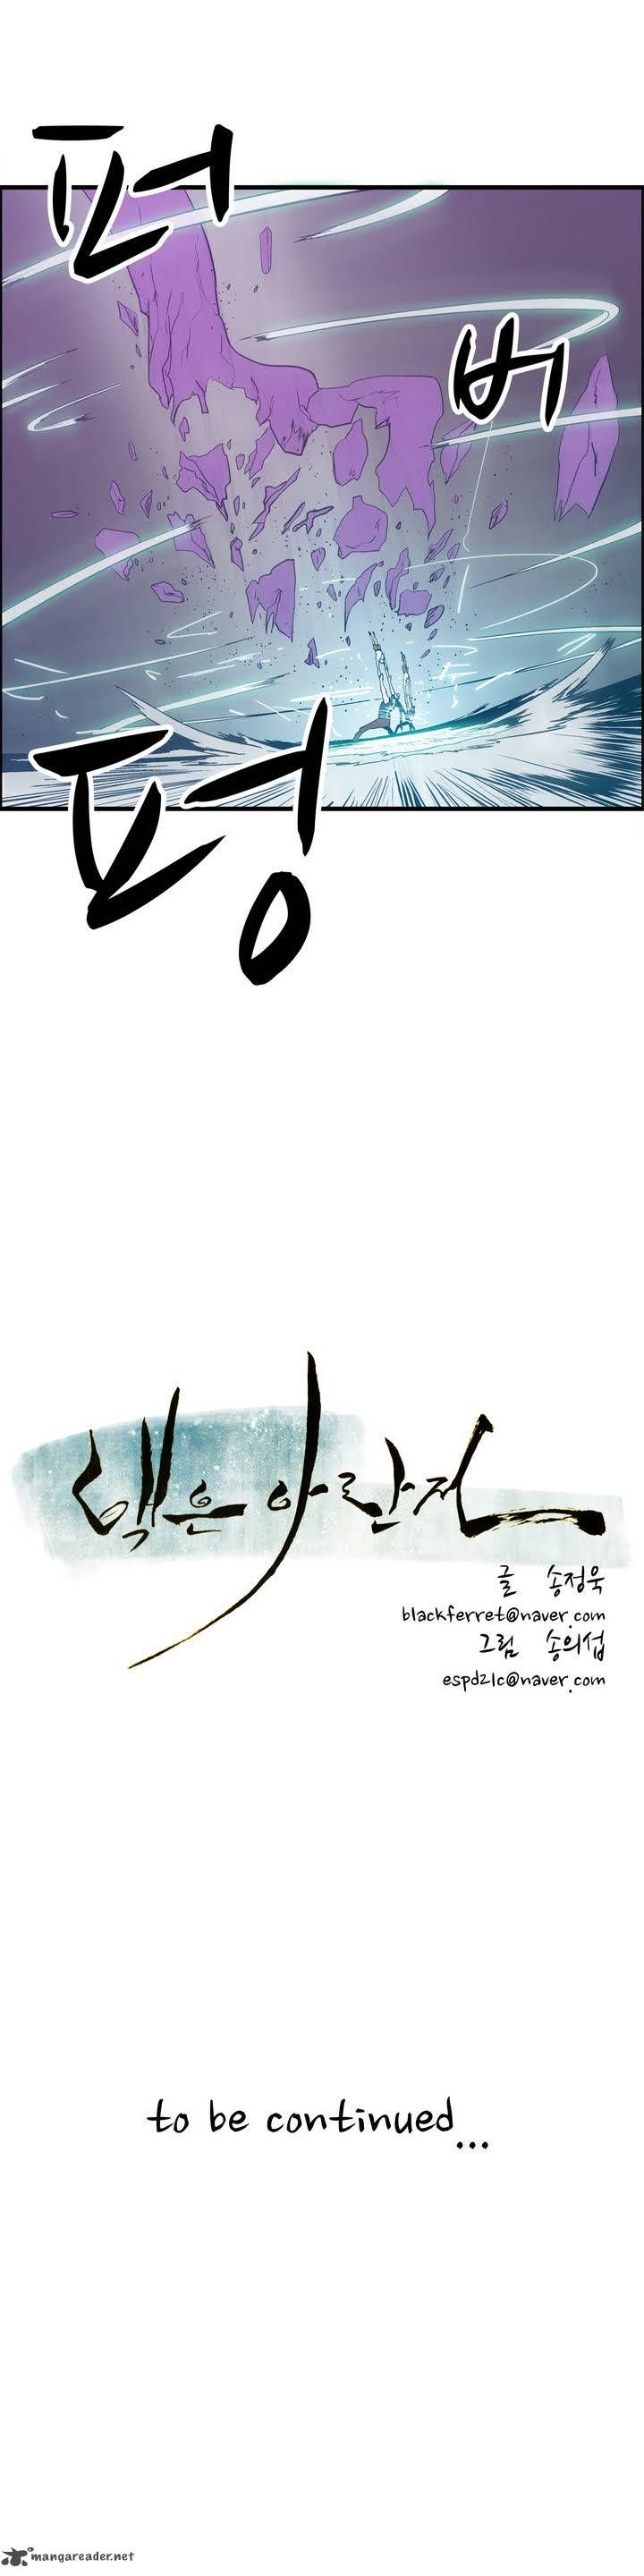 퍼
버
펑
맥은 아란저
글 송정욱
blackferret@naver.com
그림 송의섭
espd21c@naver.com
to be continued...
mangareader.net